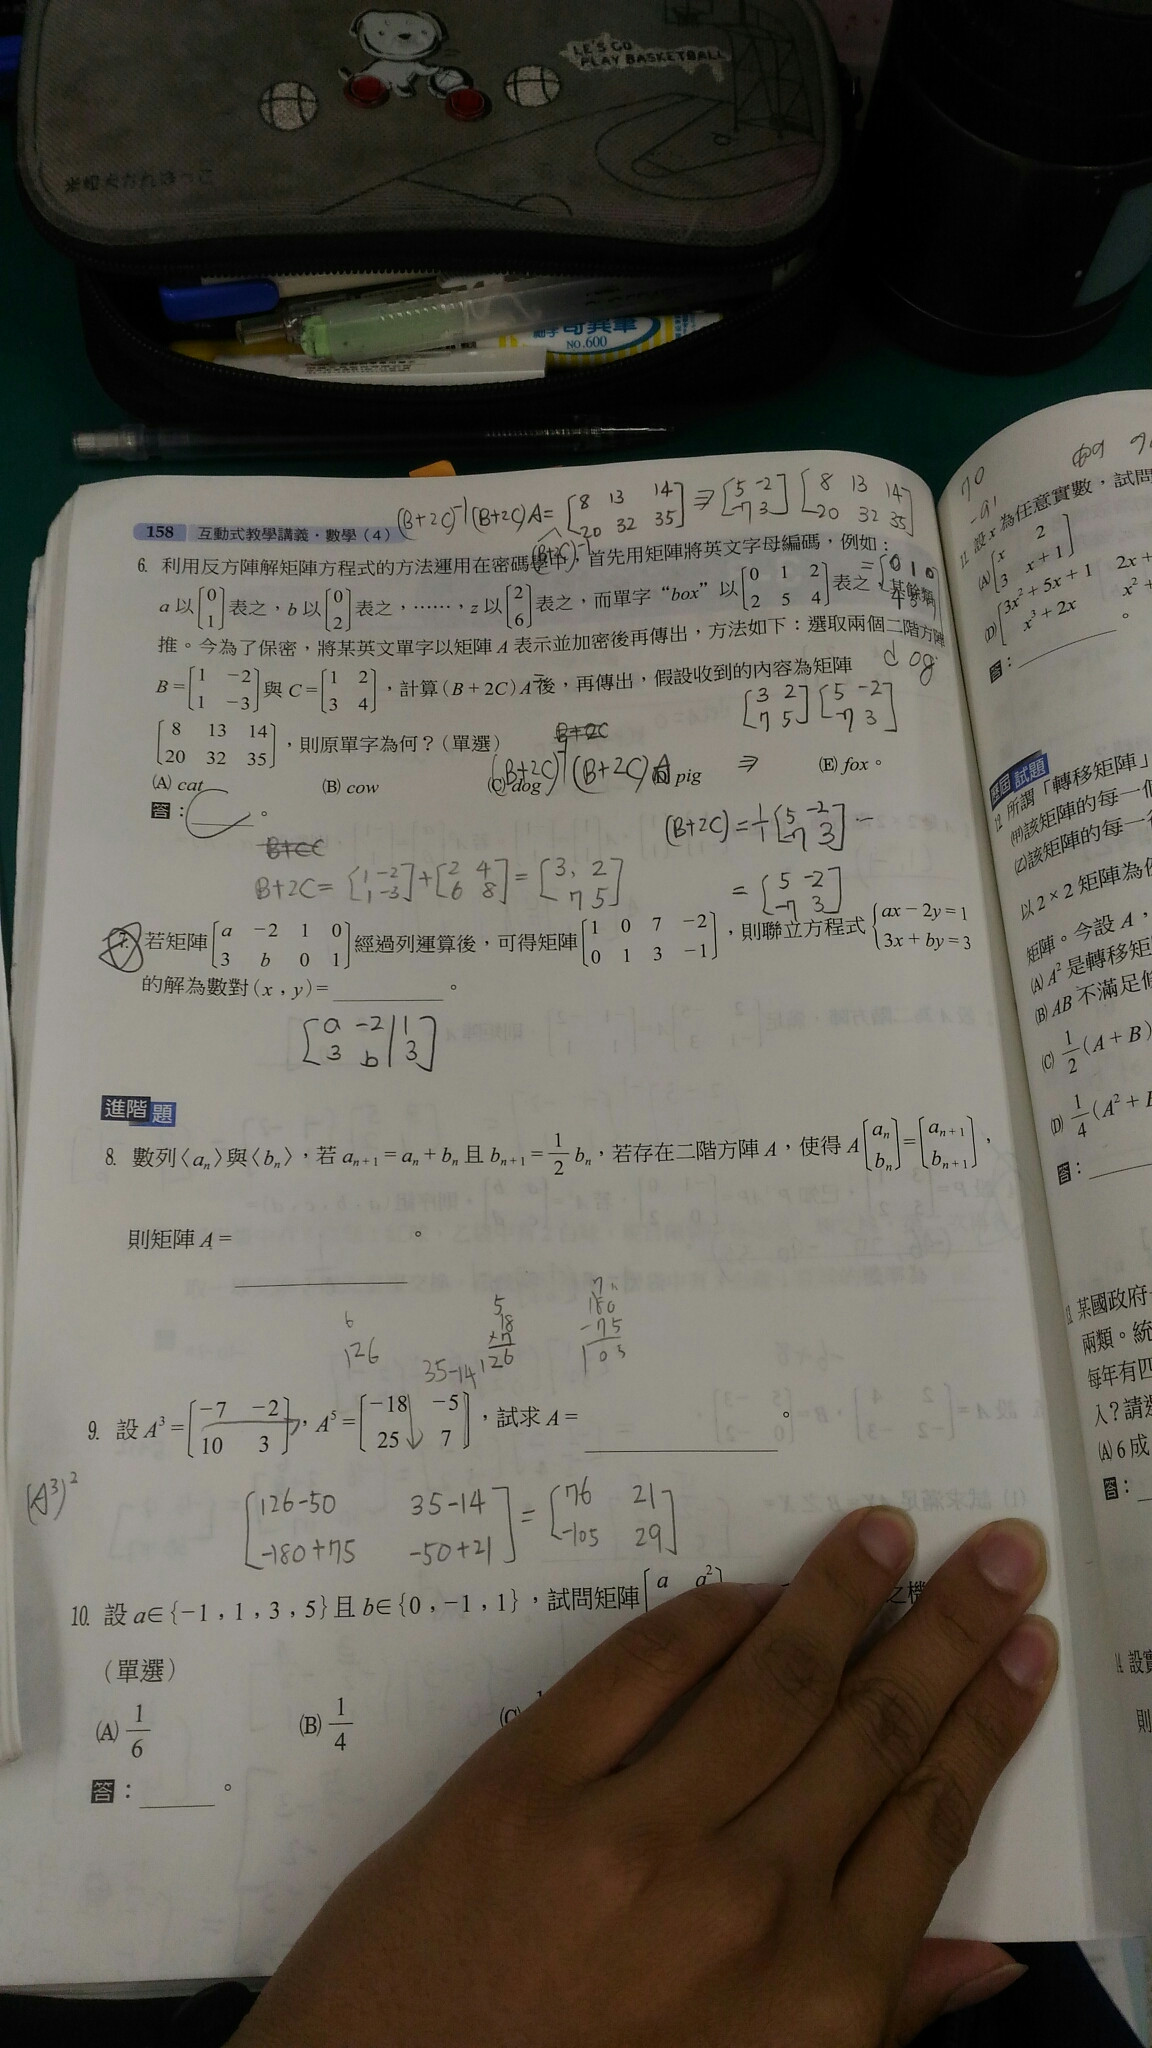 LE'S GO
PLAY BASKETBALL
奇異筆
NO.600
158 互動式教學講義・數學(4)
(B+2C)⁻¹(B+2C)A=[8 13 14; 20 32 35] ⇒ [5 -2; -7 3][8 13 14; 20 32 35]
6. 利用反方陣解矩陣方程式的方法運用在密碼學中,首先用矩陣將英文字母編碼,例如:
a 以[0; 1]表之,b 以[0; 2]表之,……,z 以[2; 6]表之,而單字 "box" 以[0 1 2; 2 5 4]表之,其餘類
推。今為了保密,將某英文單字以矩陣 A 表示並加密後再傳出,方法如下:選取兩個二階方陣
dog
B=[1 -2; 1 -3]與 C=[1 2; 3 4],計算(B+2C)A 後,再傳出,假設收到的內容為矩陣
[3 2; 7 5][5 -2; -7 3]
[8 13 14; 20 32 35],則原單字為何?(單選)
(B+2C)⁻¹(B+2C)A ⇒
(A) cat (B) cow (C) dog pig (E) fox。
答:C。
(B+2C)=1/1[5 -2; -7 3]
B+2C=[1 -2; 1 -3]+[2 4; 6 8]=[3, 2; 7 5]
=[5 -2; -7 3]
7. 若矩陣[a -2 1 0; 3 b 0 1]經過列運算後,可得矩陣[1 0 7 -2; 0 1 3 -1],則聯立方程式{ax-2y=1; 3x+by=3
的解為數對(x,y)=________。
[a -2|1; 3 b|3]
進階題
8. 數列〈aₙ〉與〈bₙ〉,若 aₙ₊₁=aₙ+bₙ 且 bₙ₊₁=1/2 bₙ,若存在二階方陣 A,使得 A[aₙ; bₙ]=[aₙ₊₁; bₙ₊₁],
則矩陣 A=________。
6
126
35-14
5
18
×7
126
180
-75
105
9. 設 A³=[-7 -2; 10 3],A⁵=[-18 -5; 25 7],試求 A=________。
(A³)²
[126-50 35-14; -180+75 -50+21]=[76 21; -105 29]
10. 設 a∈{-1,1,3,5}且 b∈{0,-1,1},試問矩陣[a a²
之機
(單選)
(A) 1/6 (B) 1/4 (C)
答:____。
70
-91
設 x 為任意實數,試問
(A)[x 2; 3 x+1]
(D)[3x²+5x+1 2x+; x³+2x x²+
答:________。
歷屆試題
12. 所謂「轉移矩陣」
(甲)該矩陣的每一個
(乙)該矩陣的每一行
以 2×2 矩陣為例
矩陣。今設 A,
(A) A² 是轉移矩陣
(B) AB 不滿足
(C) 1/2(A+B)
(D) 1/4(A²+B
答:
某國政府
兩類。統
每年有四
入?請選
(A) 6 成
答:
設實
則